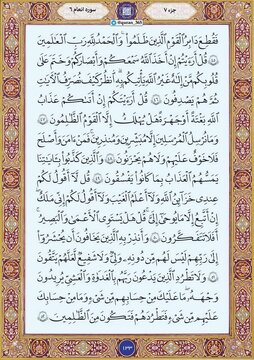 جزء ۷
@quran_365
سوره انعام ۶
فَقُطِعَ دَابِرُ الْقَوْمِ الَّذِينَ ظَلَمُوا وَالْحَمْدُ لِلَّهِ رَبِّ الْعَالَمِينَ
۴۵ قُلْ أَرَءَيْتُمْ إِنْ أَخَذَ اللَّهُ سَمْعَكُمْ وَأَبْصَارَكُمْ وَخَتَمَ عَلَى
قُلُوبِكُمْ مَنْ إِلَٰهٌ غَيْرُ اللَّهِ يَأْتِيكُمْ بِهِ انْظُرْ كَيْفَ نُصَرِّفُ الْآيَاتِ
ثُمَّ هُمْ يَصْدِفُونَ ۴۶ قُلْ أَرَءَيْتَكُمْ إِنْ أَتَاكُمْ عَذَابُ
اللَّهِ بَغْتَةً أَوْ جَهْرَةً هَلْ يُهْلَكُ إِلَّا الْقَوْمُ الظَّالِمُونَ ۴۷
وَمَا نُرْسِلُ الْمُرْسَلِينَ إِلَّا مُبَشِّرِينَ وَمُنْذِرِينَ فَمَنْ ءَامَنَ وَأَصْلَحَ
فَلَا خَوْفٌ عَلَيْهِمْ وَلَا هُمْ يَحْزَنُونَ ۴۸ وَالَّذِينَ كَذَّبُوا بِآيَاتِنَا
يَمَسُّهُمُ الْعَذَابُ بِمَا كَانُوا يَفْسُقُونَ ۴۹ قُلْ لَا أَقُولُ لَكُمْ
عِنْدِي خَزَائِنُ اللَّهِ وَلَا أَعْلَمُ الْغَيْبَ وَلَا أَقُولُ لَكُمْ إِنِّي مَلَكٌ
إِنْ أَتَّبِعُ إِلَّا مَا يُوحَىٰ إِلَيَّ قُلْ هَلْ يَسْتَوِي الْأَعْمَىٰ وَالْبَصِيرُ
أَفَلَا تَتَفَكَّرُونَ ۵۰ وَأَنْذِرْ بِهِ الَّذِينَ يَخَافُونَ أَنْ يُحْشَرُوا
إِلَىٰ رَبِّهِمْ لَيْسَ لَهُمْ مِنْ دُونِهِ وَلِيٌّ وَلَا شَفِيعٌ لَعَلَّهُمْ يَتَّقُونَ
۵۱ وَلَا تَطْرُدِ الَّذِينَ يَدْعُونَ رَبَّهُمْ بِالْغَدَاةِ وَالْعَشِيِّ يُرِيدُونَ
وَجْهَهُ مَا عَلَيْكَ مِنْ حِسَابِهِمْ مِنْ شَيْءٍ وَمَا مِنْ حِسَابِكَ
عَلَيْهِمْ مِنْ شَيْءٍ فَتَطْرُدَهُمْ فَتَكُونَ مِنَ الظَّالِمِينَ ۵۲
۱۳۳